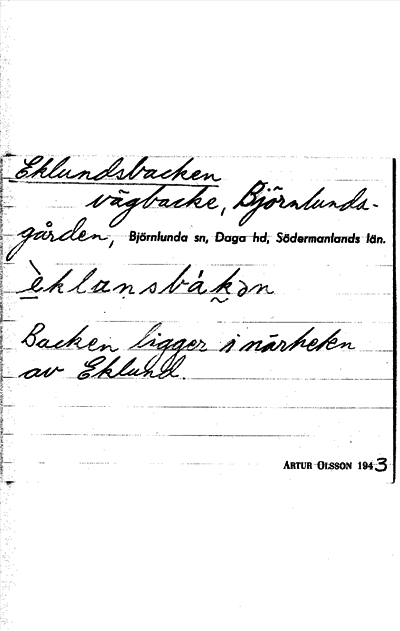 Eklundsbacken
vägbacke, Björnlunds-
gården, Björnlunda sn, Daga hd, Södermanlands län.
Backen ligger i närheten
av Eklund.
ARTUR OLSSON 1943